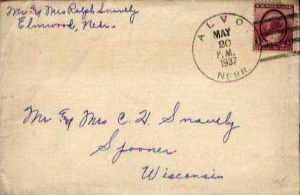 Mr. & Mrs Ralph Snavely
Elmwood, Nebr.
ALVO
MAY
20
P.M.
1937
NEBR.
Mr & Mrs C. H. Snavely
Spooner
Wisconsin